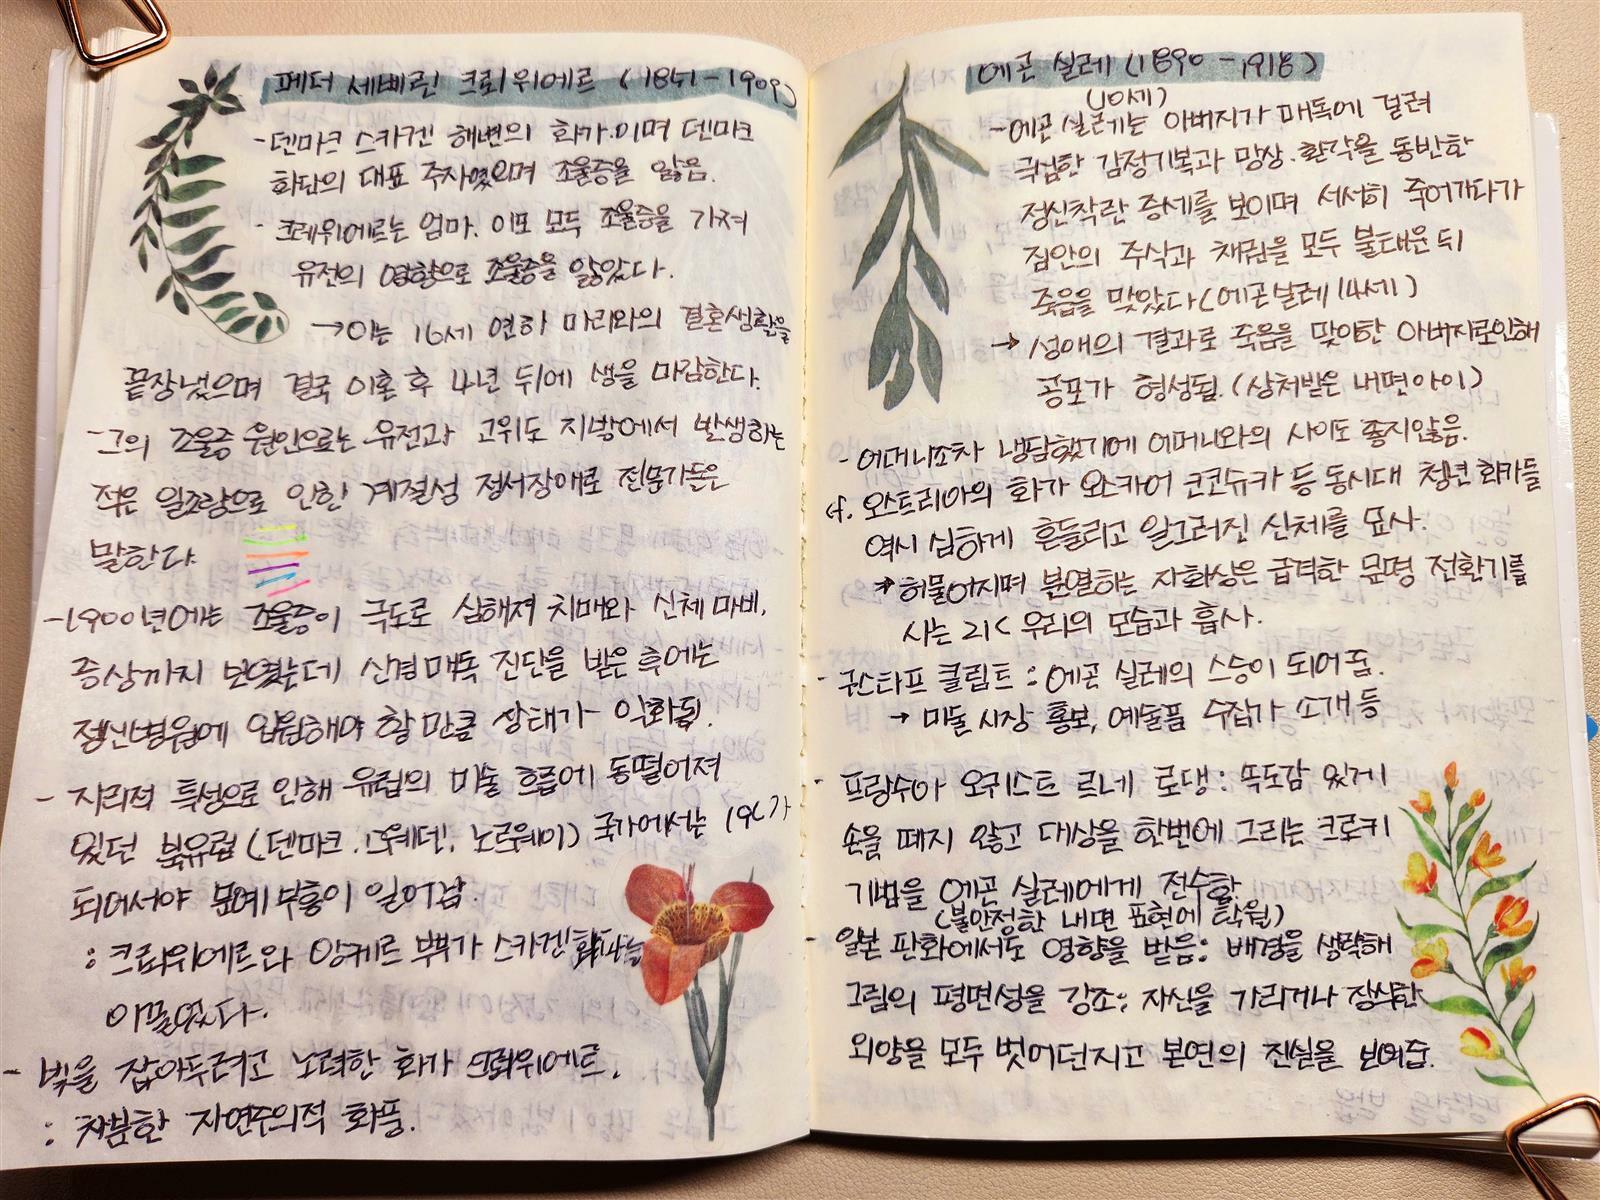 페더 세베린 크뢰위에르 (1851-1909)
- 덴마크 스카겐 해변의 화가이며 덴마크
화단의 대표 주자였으며 조울증을 앓음.
- 크뢰위에르는 엄마, 이모 모두 조울증을 가져
유전의 영향으로 조울증을 앓았다.
→ 이는 16세 연하 마리와의 결혼생활을
끝장냈으며 결국 이혼 후 4년 뒤에 생을 마감한다.
- 그의 조울증 원인으로는 유전과 고위도 지방에서 발생하는
적은 일조량으로 인한 계절성 정서장애로 전문가들은
말한다.
- 1900년에는 조울증이 극도로 심해져 치매와 신체 마비,
증상까지 보였는데 신경매독 진단을 받은 후에는
정신병원에 입원해야 할 만큼 상태가 악화됨.
- 지리적 특성으로 인해 유럽의 미술 흐름에 동떨어져
있던 북유럽 (덴마크, 스웨덴, 노르웨이) 국가에서는 19C가
되어서야 문예 부흥이 일어남.
: 크뢰위에르와 앙케르 부부가 스카겐 화파를
이끌었다.
- 빛을 잡아두려고 노력한 화가 크뢰위에르.
: 차분한 자연주의적 화풍.
에곤 실레 (1890-1918)
(10세)
- 에곤 실레는 아버지가 매독에 걸려
극심한 감정기복과 망상·환각을 동반한
정신착란 증세를 보이며 서서히 죽어가다가
집안의 주식과 채권을 모두 불태운 뒤
죽음을 맞았다 (에곤실레 14세)
→ 성애의 결과로 죽음을 맞이한 아버지로인해
공포가 형성됨. (상처받은 내면아이)
- 어머니조차 냉담했기에 어머니와의 사이도 좋지않음.
cf. 오스트리아의 화가 오스카어 코코슈카 등 동시대 청년 화가들
역시 심하게 흔들리고 일그러진 신체를 묘사.
* 허물어지며 분열하는 자화상은 급격한 문명 전환기를
사는 21C 우리의 모습과 흡사.
- 구스타프 클림트 : 에곤 실레의 스승이 되어줌.
→ 미술 시장 홍보, 예술품 수집가 소개 등
- 프랑수아 오귀스트 르네 로댕 : 속도감 있게
손을 떼지 않고 대상을 한번에 그리는 크로키
기법을 에곤 실레에게 전수함.
(불안정한 내면 표현에 탁월)
- 일본 판화에서도 영향을 받음: 배경을 생략해
그림의 평면성을 강조: 자신을 가리거나 장식한
외양을 모두 벗어던지고 본연의 진실을 보여줌.